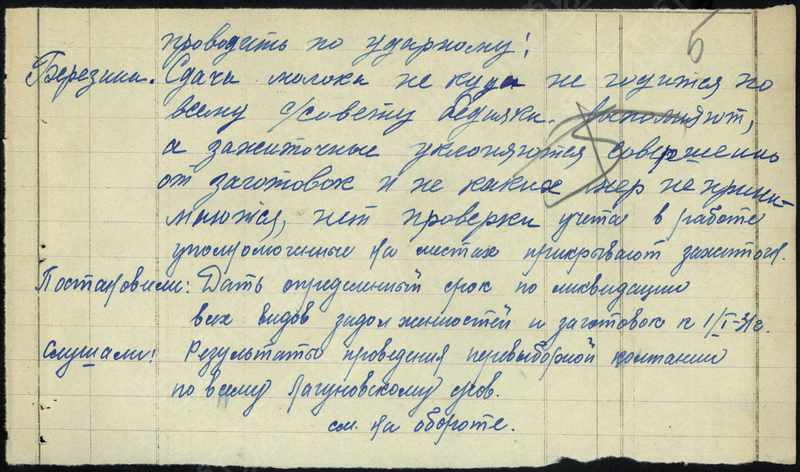 5
проводить по ударному!
Березина. Сдача молока не куда не годится по
всему с/совету бедняки. выполняют,
а зажиточные уклоняются совершенно
от заготовок и не каких мер не прини-
маются, нет проверки учета в работе
уполномоченные на местах прикрывают зажиточн.
Постановили: Дать определенный срок по ликвидации
всех видов задолженностей и заготовок к 1/I-31г.
Слушали! Результаты проведения перевыборной компании
по всему Лагуновскому
см. на обороте.